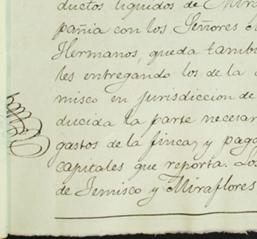 ductos líquidos de Mira
pañia con los Señores
Hermanos, queda tambi
les entregando los de la
misco en jurisdiccion de
ducida la parte necesar
gastos de la finca, y pag
capitales que reporta. Los
de Temisco y Miraflores